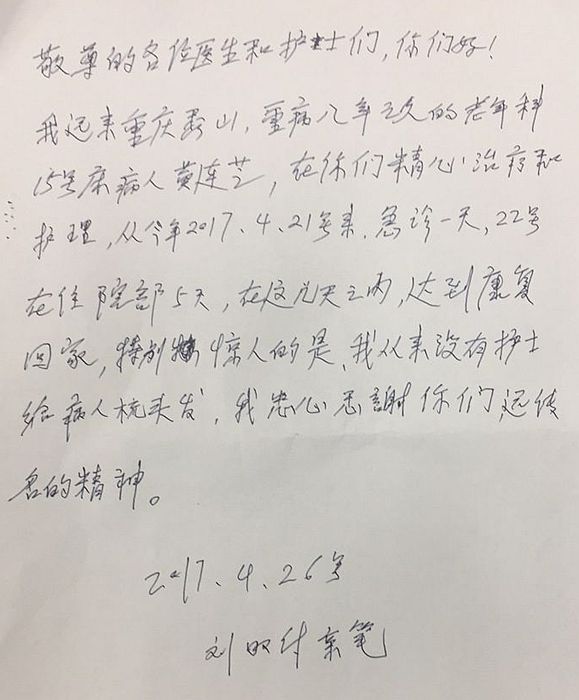 敬尊的各位医生和护士们,你们好!
我远来重庆巫山,重病八年三次的老年科
15号床病人黄连芝,在你们精心治疗和
护理,从今年2017.4.21号来.急诊一天,22号
在住院部5天,在这几天之内,达到康复
回家,特别惊人的是,我从来没有护士
给病人梳头发,我忠心感謝你们远传
名的精神。
2017.4.26号
刘 笔